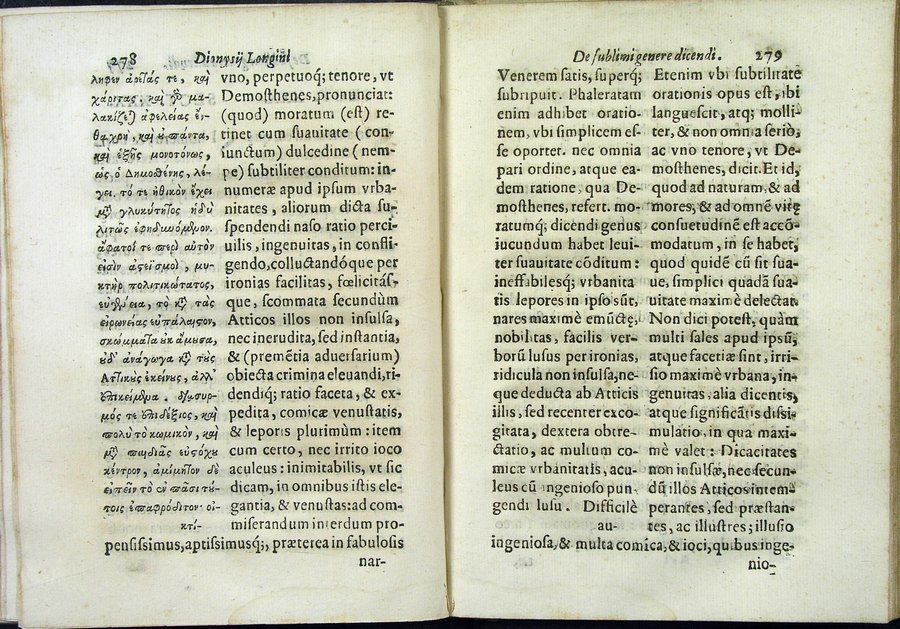 278 Dionysij Longini
ληφεν ἀρετάς τε, καὶ
χάριτας, καὶ
λακίζε) ἀφελείας ἔν-
θα χρὴ, καὶ ὀ πάντα,
καὶ ἑξῆς μονοτόνως,
ὡς ὁ Δημοσθένης, λέ-
γει. τό τε ἠθικὸν ἔχει
μζ γλυκύτητος ἡδὺ
λιτῶς ἐφηδυνόμενον.
ἄφατοί τε περὶ αὐτὸν
εἰσὶν ἀστεϊσμοὶ, μυ-
κτὴρ πολιτικώτατος,
εὐγένεια, τὸ κζ τὰς
εἰρωνείας εὐπάλαιστον,
σκώμματα ὐκ ἄμουσα,
ὐδ' ἀνάγωγα κζ τὺς
Ἀττικὺς ἐκείνυς, ἀλλ'
ἐπικείμενα. διασυρ-
μός τε ἐπιδέξιος, καὶ
πολὺ τὸ κωμικὸν, καὶ
μζ παιδιᾶς εὐστόχυ
κέντρον, ἀμίμητον δὲ
εἰπεῖν τὸ ἐν πᾶσι τύ-
τοις ἐπαφρόδιτον· οἰ-
κτί-
vno, perpetuoq́; tenore, vt
Demosthenes, pronunciat:
(quod) moratum (est) re-
tinet cum suauitate (con-
iunctum) dulcedine (nem-
pe) subtiliter conditum: in-
numeræ apud ipsum vrba-
nitates, aliorum dicta su-
spendendi naso ratio perci-
uilis, ingenuitas, in confli-
gendo, colluctandóque per
ironias facilitas, fœlicitás-
que, scommata secundùm
Atticos illos non insulsa,
nec inerudita, sed instantia,
& (premẽtia aduersarium)
obiecta crimina eleuandi, ri-
dendiq́; ratio faceta, & ex-
pedita, comicæ venustatis,
& leporis plurimùm: item
cum certo, nec irrito ioco
aculeus: inimitabilis, vt sic
dicam, in omnibus istis ele-
gantia, & venustas: ad com-
miserandum interdum pro-
pensissimus, aptissimusq́;, præterea in fabulosis
nar-
De sublimi genere dicendi. 279
Venerem satis, superq́;
subripuit. Phaleratam
enim adhibet oratio-
nem, vbi simplicem es-
se oportet. nec omnia
pari ordine, atque ea-
dem ratione, qua De-
mosthenes, refert. mo-
ratumq́; dicẽdi genus
iucundum habet leui-
ter suauitate cõditum:
ineffabilesq́; vrbanita
tis lepores in ipso sũt,
nares maximè emũctę,
nobilitas, facilis ver-
borũ lusus per ironias,
ridicula non insulsa, ne-
que deducta ab Atticis
illis, sed recenter exco-
gitata, dextera obtre-
ctatio, ac multum co-
micæ vrbanitatis, acu-
leus cũ ingenioso pun-
gendi lusu. Difficilè
au-
Etenim vbi subtilitate
orationis opus est, ibi
languescit, atq; molli-
ter, & non omnia seriò,
ac vno tenore, vt De-
mosthenes, dicit. Et id,
quod ad naturam, & ad
mores, & ad omnẽ vitę
consuetudinẽ est accõ-
modatum, in se habet,
quod quidẽ cũ sit sua-
ue, simplici quadã sua-
uitate maximè delectat.
Non dici potest, quàm
multi sales apud ipsũ,
atque facetiæ sint, irri-
sio maximè vrbana, in-
genuitas, alia dicentis,
atque significãtis dissi-
mulatio, in qua maxi-
mè valet: Dicacitates
non insulsæ, nec secun-
dũ illos Atticos intem-
perantes, sed præstan-
tes, ac illustres; illusio
ingeniosa, & multa comica, & ioci, quibus inge-
nio-